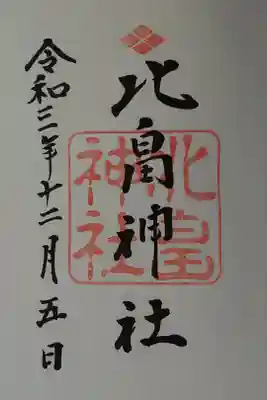 北畠神社
北畠
神社
令和三年十二月五日